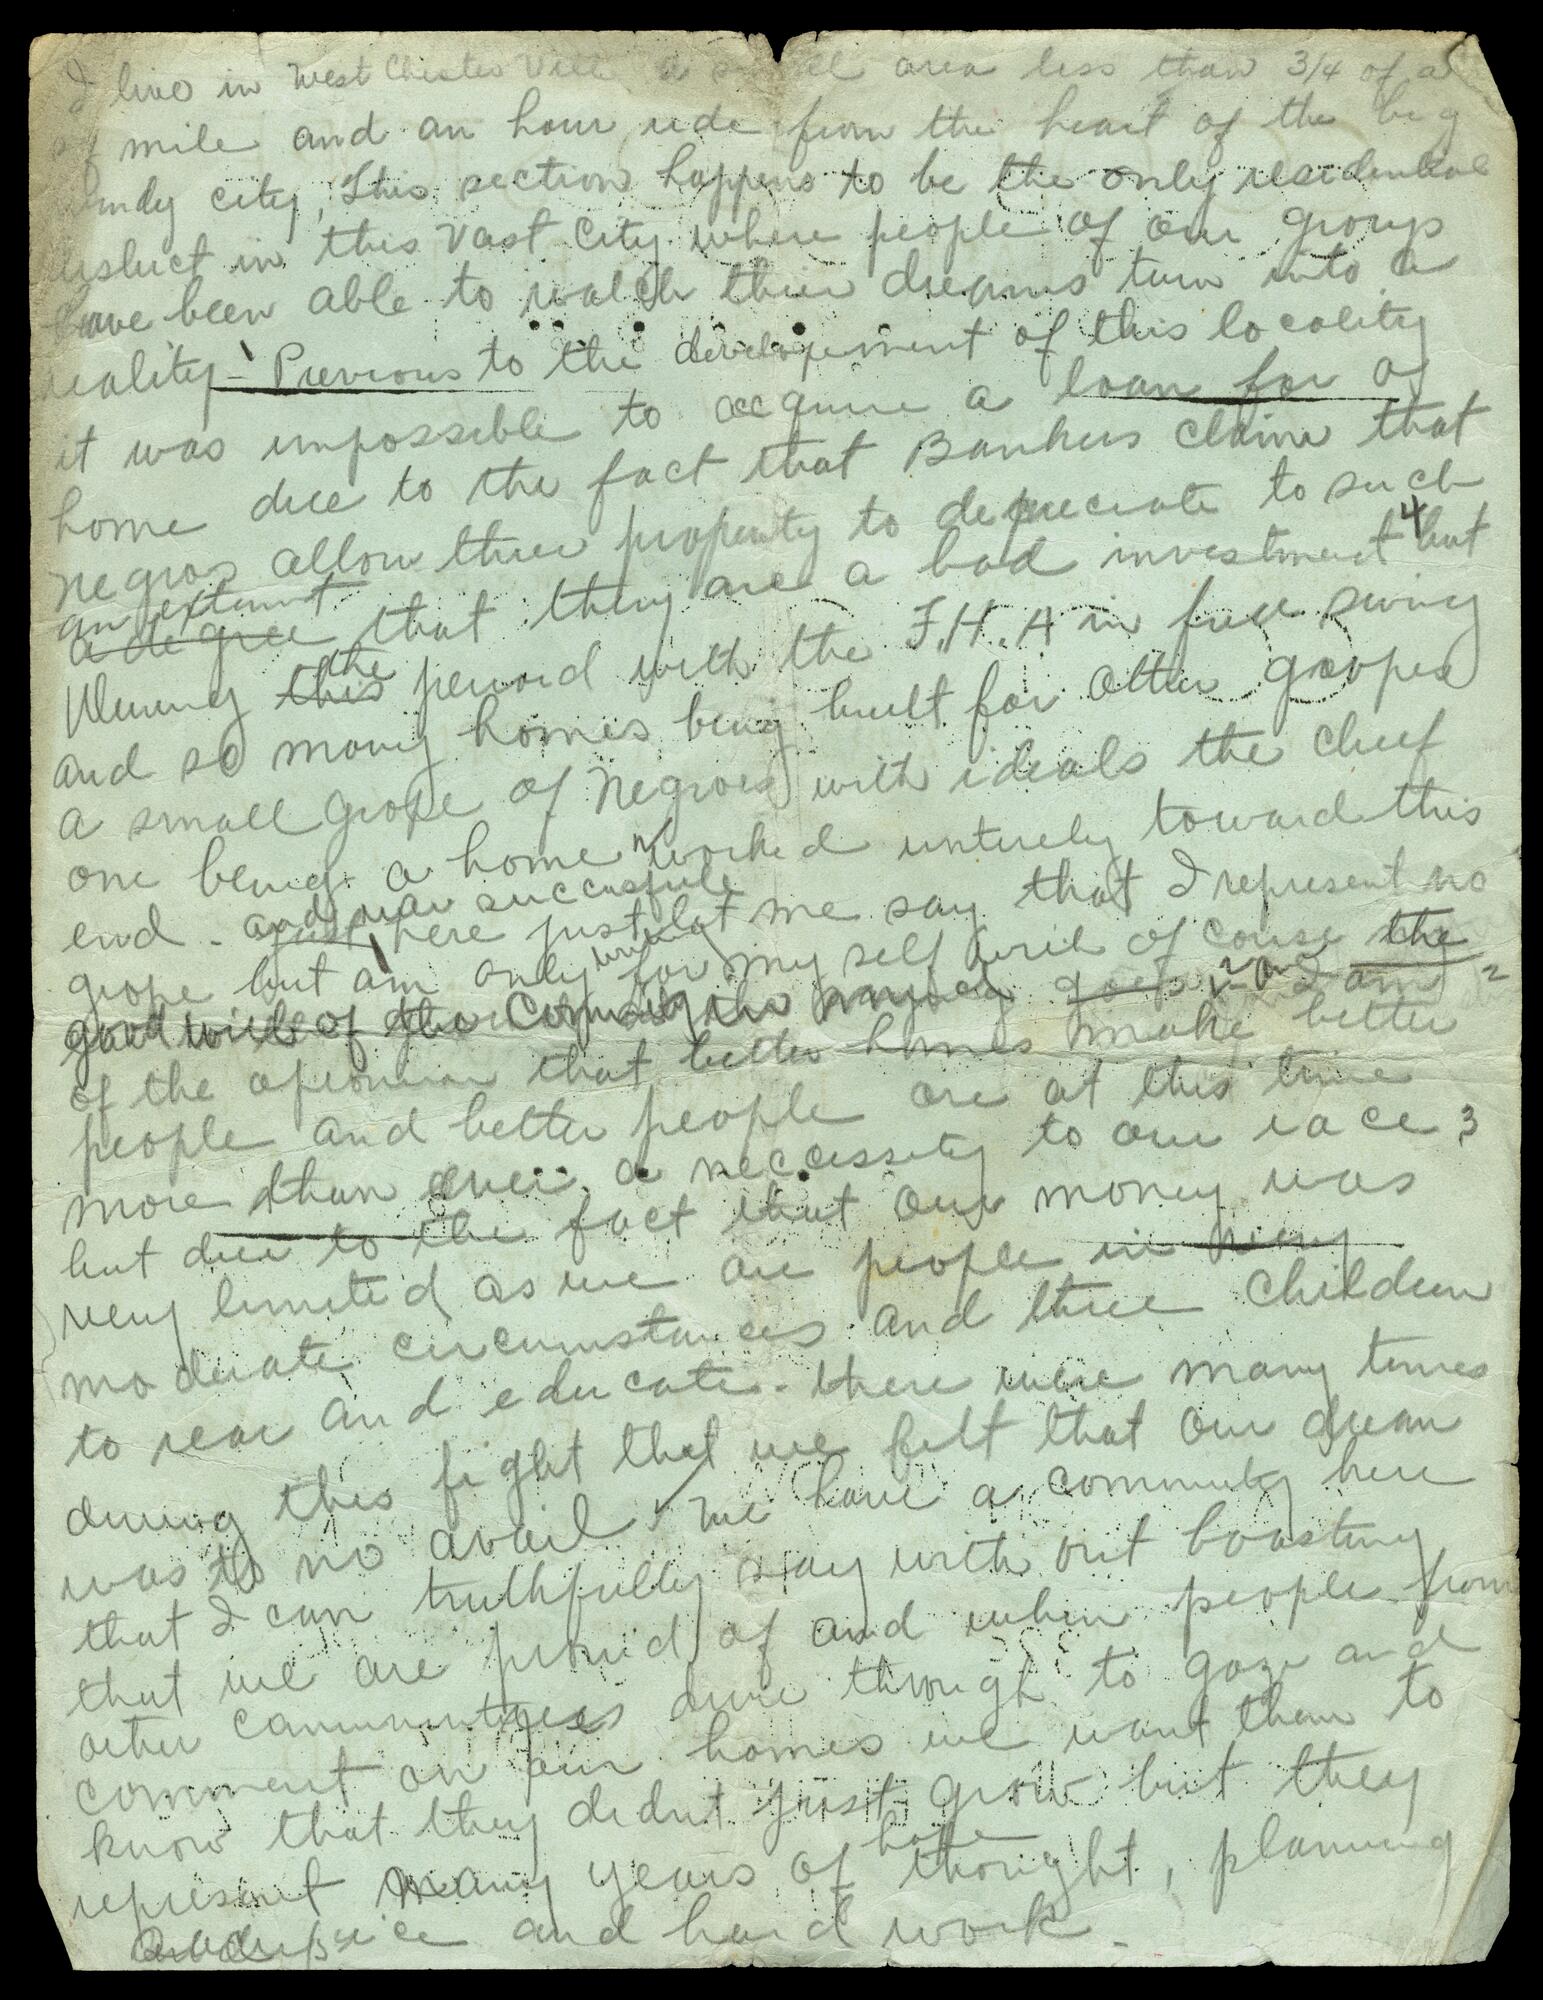 I live in West Chester Ville a small area less than 3/4 of a
sq mile and an hour ride from the heart of the big
windy city, This section happens to be the only residential
district in this vast City where people of our group
have been able to watch their dreams turn into a
reality - Previous to the developement of this locality
it was impossible to acquire a loan for a
home due to the fact that Bankers claim that
negros allow their property to depreciate to such
an extent
a degree that they are a bad investment 4 but
During this the period with the F.H.A in full swing
and so many homes being built for other groopes
a small grope of Negroes with ideals the chief
one being a home worked untirely toward this
end - and was successfull
just here just let me say that I represent no
grope but am only for my self with of couse the
good will of the Community goes 2 and I am 2
of the opionion that better homes make better
people and better people are at this time
more than ever a neccessity to our race 3
but due to the fact that our money was
very limited as we are people in very
moderate circumstances and three children
to rear and educate - there were many times
during this fight that we felt that our dream
was to no avail We have a communty here
that I can truthfully say with out boasting
that we are proud of and when people from
other communtyes drive through to gaze and
comment on our homes we want them to
know that they didnt just grow but they
represent many years of hope thought, planning
and hard work -